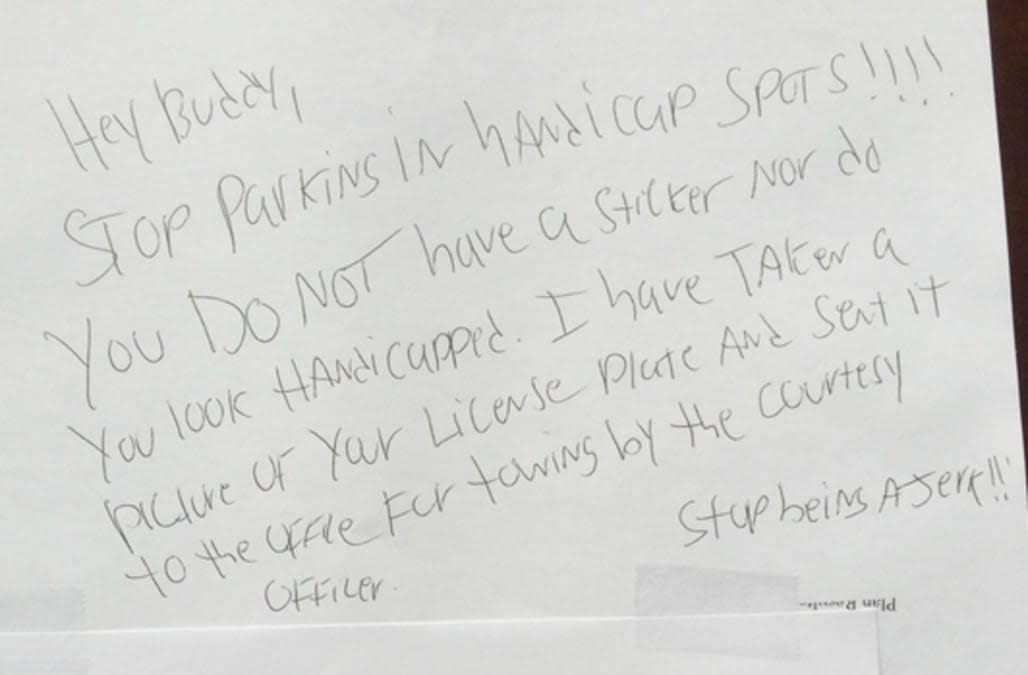 Hey Buddy,
STOP Parking IN hANdicap SPOTS!!!!
You DO NOT have a sticker NOR do
You look HANdicapped. I have TAKen a
picture OF Your License Plate ANd Sent it
to the OFFice For towing by the courtesy
OFFicer.
Stop being A Jerk!!
Plan